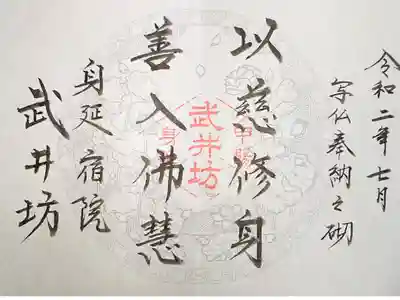 令和二年七月
写仏奉納之砌
以慈修身
善入佛慧
身延宿院
武井坊
甲陽
武井坊
身